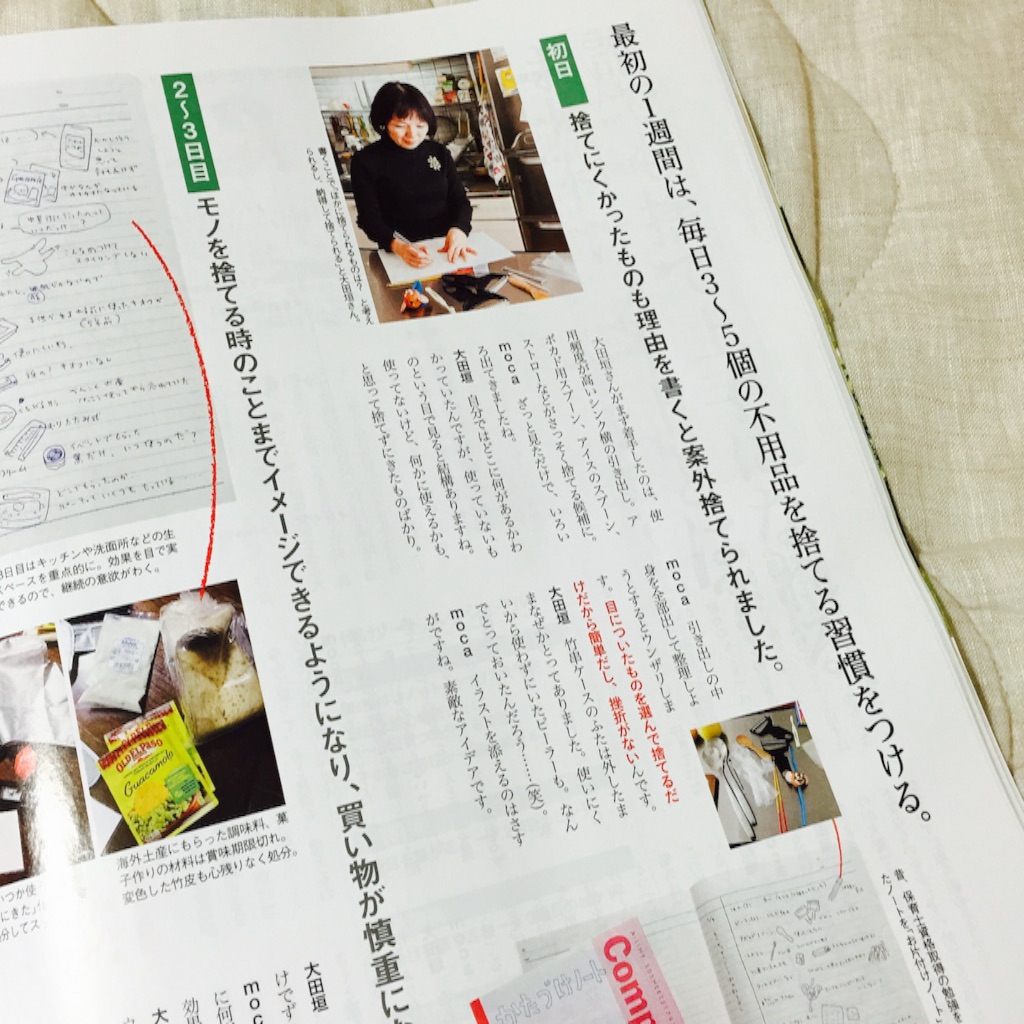 最初の1週間は、毎日3〜5個の不用品を捨てる習慣をつける。
初日
捨てにくかったものも理由を書くと案外捨てられました。
書くことで「ほかに捨てられるものは？」と考え
られるし、納得して捨てられる」と大田垣さん。
大田垣さんがまず着手したのは、使
用頻度が高いシンク横の引き出し。ア
ボカド用スプーン、アイスのスプーン、
ストローなどがさっそく捨てる候補に。
moca ざっと見ただけで、いろい
ろ出てきましたね。
大田垣 自分ではどこに何があるかわ
かっていたんですが、使っていないも
のという目で見ると結構ありますね。
使ってないけど、何かに使えるかも、
と思って捨てずにきたものばかり。
moca 引き出しの中
身を全部出して整理しよ
うとするとウンザリしま
す。目についたものを選んで捨てるだ
けだから簡単だし、挫折がないんです。
大田垣 竹串ケースのふたは外したま
まなぜかとってありました。使いにく
いから使わずにいたピーラーも。なん
でとっておいたんだろう……(笑)。
moca イラストを添えるのはさす
がですね。素敵なアイデアです。
昔、保育士資格取得の勉強を
たノートを「お片付けノート」
かたづけノート
Comp
2〜3日目
モノを捨てる時のことまでイメージできるようになり、買い物が慎重にな
3日目はキッチンや洗面所などの生
ペースを重点的に。効果を目で実
できるので、継続の意欲がわく。
OLD EL PASO
Guacamole
海外土産にもらった調味料、菓
子作りの材料は賞味期限切れ。
変色した竹皮も心残りなく処分。
いつか使
にきた」
分してス
大田垣
けでず
moc
に何
効果